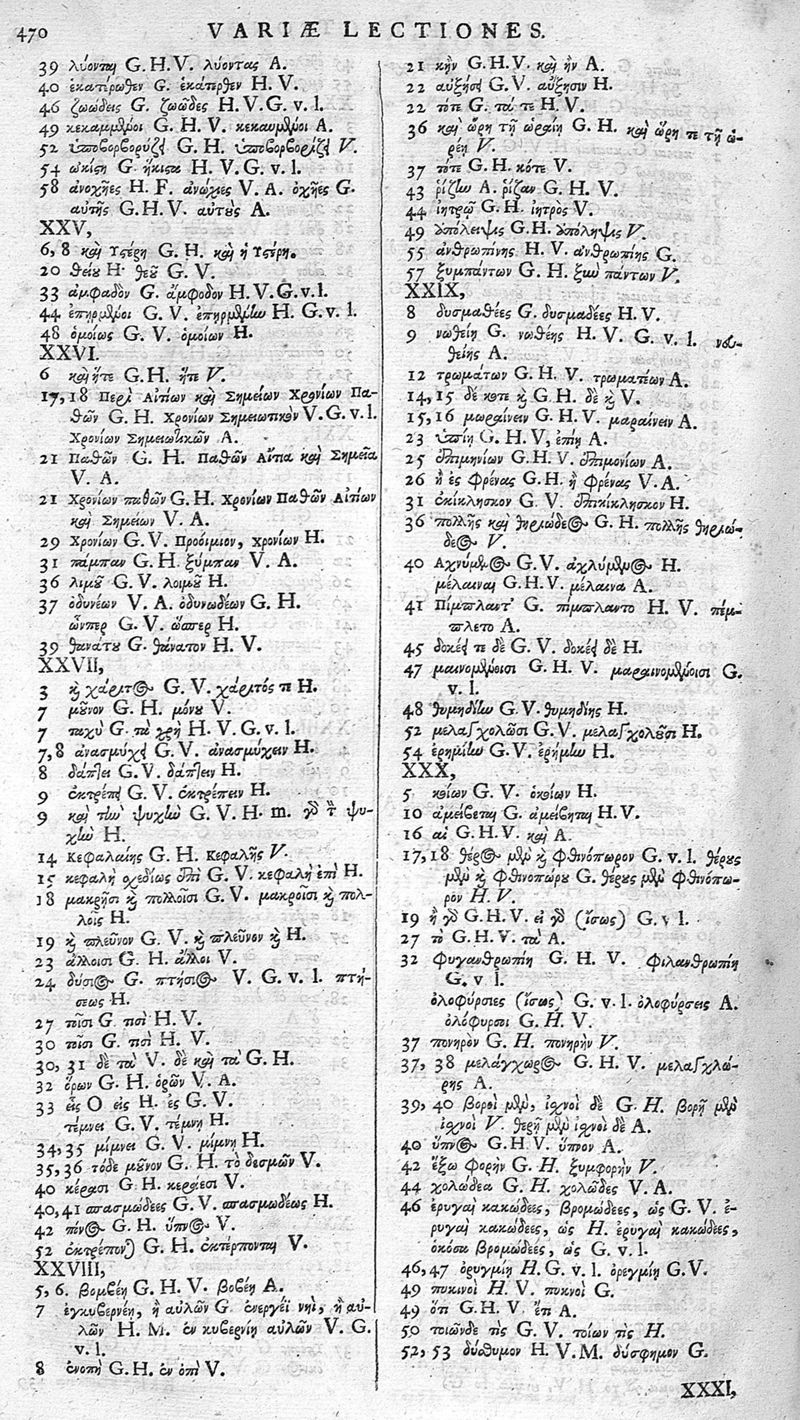 470
VARIÆ LECTIONES.
39 λύονται G. H. V. λύοντας A.
40 ἑκατέρωθεν G. ἑκάτερθεν H. V.
46 ζωώδεις G. ζωῶδες H. V. G. v. l.
49 κεκαμμένοι G. H. V. κεκαυμένοι A.
52 ὑποβορβορύζει G. H. ὑποβορβορίζει V.
54 ὠκίση G. ἥκιστα H. V. G. v. l.
58 ἀνοχῆες H. F. ἀνώχιες V. A. ὀχῆες G.
αὐτῆς G. H. V. αὐτοὺς A.
XXV,
6, 8 καὶ ὑστέρη G. H. καὶ ἡ ὑστέρη.
20 θείου H. θεοῦ G. V.
33 ἀμφαδὸν G. ἄμφοδον H. V. G. v. l.
44 ἐπηρμένοι G. V. ἐπηρμένων H. G. v. l.
48 ὁμοίως G. V. ὁμοίων H.
XXVI.
6 καὶ ἥτε G. H. ἥτε V.
17, 18 Περὶ Αἰτίων καὶ Σημείων Χρονίων Πα-
θῶν G. H. Χρονίων Σημειωτικὸν V. G. v. l.
Χρονίων Σημειωτικῶν A.
21 Παθῶν G. H. Παθῶν Αἴτια καὶ Σημεῖα
V. A.
21 Χρονίων παθῶν G. H. Χρονίων Παθῶν Αἰτίων
καὶ Σημείων V. A.
29 Χρονίων G. V. Προοίμιον, χρονίων H.
31 πάμπαν G. H. ξύμπαν V. A.
36 λιμοῦ G. V. λοιμοῦ H.
37 ὀδυνέων V. A. ὀδυνωδέων G. H.
ὧνπερ G. V. ὥσπερ H.
39 θανάτου G. θάνατον H. V.
XXVII,
3 καὶ χάριτος G. V. χάριτός τε H.
7 μοῦνον G. H. μόνου V.
7 παχὺ G. τὰ χρὴ H. V. G. v. l.
7, 8 ἀνασμύχει G. V. ἀνασμύχειν H.
8 δάπτει G. V. δάπτειν H.
9 ἐκτρέπει G. V. ἐκτρέπειν H.
9 καὶ τὴν ψυχὴν G. V. H. m. γὰρ τὴν ψυ-
χὴν H.
14 Κεφαλαίης G. H. Κεφαλῆς V.
15 κεφαλὴ σχεδίως ἐπὶ G. V. κεφαλὴ ἐπὶ H.
18 μακρῇσι καὶ πολλοῖσι G. V. μακροῖσι καὶ πολ-
λοῖς H.
19 καὶ πλεῦνον G. V. καὶ πλεῦνον καὶ H.
23 ἄλλοισι G. H. ἄλλοι V.
24 δύσιος G. πτήσιος V. G. v. l. πτή-
σεως H.
27 ποῖσι G. πισὶ H. V.
30 ποῖσι G. πισὶ H. V.
30, 31 δὲ τὰ V. δὲ καὶ τὰ G. H.
32 ὅρων G. H. ὁρῶν V. A.
33 εἷς O εἰς H. ἐς G. V.
τέμνει G. V. τέμνῃ H.
34, 35 μίμνει G. V. μίμνῃ H.
35, 36 τόδε μοῦνον G. H. τὸ δεσμῶν V.
40 κέρασι G. H. κεράεσι V.
40, 41 σπασμώδεες G. V. σπασμωδέως H.
42 πένος G. H. ὕπνος V.
52 ἐκτρέπονται G. H. ἐκτέρπονται V.
XXVIII,
5, 6. βομβέῃ G. H. V. βοβέῃ A.
7 ἐγκυβερνέῃ, ἢ αὐλῶν G. ἐνεργέῒ νηῒ, ἢ αὐ-
λῶν H. M. ἐν κυβερνίῃ αὐλῶν V. G.
v. l.
8 ἐνοπὴ G. H. ἐν ὀπὶ V.
21 κἢν G. H. V. καὶ ἢν A.
22 αὐξήσει G. V. αὔξησιν H.
22 τότε G. τά τε H. V.
36 καὶ ὥρη τῇ ὡραίῃ G. H. καὶ ὥρη τε τῇ ὡ-
ρέῃ V.
37 τότε G. H. κότε V.
43 ῥίζην A. ῥίζαν G. H. V.
44 ἰητρῷ G. H. ἰητρὸς V.
49 ἀπόλειψις G. H. ἀπόληψις V.
55 ἀνθρωπίνης H. V. ἀνθρωπίης G.
57 ξυμπάντων G. H. ξὺν πάντων V.
XXIX,
8 δυσμαθέες G. δυσμαδέες H. V.
9 νωθείη G. νωθέης H. V. G. v. l. νου-
θείης A.
12 τρωμάτων G. H. V. τρωματέων A.
14, 15 δέ κοτε καὶ G. H. δὲ καὶ V.
15, 16 μωραίνειν G. H. V. μαραίνειν A.
23 ὑπίῃ G. H. V, ἐπίῃ A.
25 ἐπιμηνίων G. H. V. ἐπιμονίων A.
26 ἢ ἐς φρένας G. H. ἢ φρένας V. A.
31 ἐκίκλησκον G. V. ἐπικίκλησκον H.
36 πολλῆς καὶ θηριώδεος G. H. πολλῆς θηριώ-
δεος V.
40 Ἀχνύμενος G. V. ἀχλύμενος H.
μέλαιναι G. H. V. μέλαινα A.
41 Πίμπλαντ' G. πίμπλαντο H. V. πέμ-
πλετο A.
45 δοκέει τε δὲ G. V. δοκέει δὲ H.
47 μαινομένοισι G. H. V. μαραινομένοισι G.
v. l.
48 θυμηδίην G. V. θυμηδίης H.
52 μελαγχολῶσι G. V. μελαγχολοῦσι H.
54 ἐρημίην G. V. ἐρήμην H.
XXX,
5 κθίων G. V. ὀκθίων H.
10 ἀμείβεται G. ἀμείβηται H. V.
16 αἱ G. H. V. καὶ A.
17, 18 θέρος μὲν καὶ φθινόπωρον G. v. l. θέρους
μὲν καὶ φθινοπώρου G. θέρους μὲν φθινόπω-
ρον H. V.
19 ἢ γὰρ G. H. V. εἰ γὰρ (ἴσως) G. v. l.
27 τὸ G. H. V. τὰ A.
32 φυγανθρωπίη G. H. V. φιλανθρωπίη
G. v. l.
ὀλοφύρσιες (ἴσως) G. v. l. ὀλοφύρσεις A.
ὀλόφυρσοι G. H. V.
37 πονηρὸν G. H. πονηρὴν V.
37, 38 μελάγχωρος G. H. V. μελαγχλώ-
ρης A.
39, 40 βοροὶ μὲν, ἰχνοὶ δὲ G. H. βορῇ μὲν
ἰχνοὶ V. θερῇ μὲν ἰχνοὶ δὲ A.
40 ὕπνος G. H. V. ὕπνον A.
42 ἔξω φορὴν G. H. ξυμφορὴν V.
44 χολώδεα G. H. χολῶδες V. A.
46 ἐρυγαὶ κακώδεες, βρομώδεες, ὡς G. V. ἐ-
ρυγαὶ κακώδεες, ὡς H. ἐρυγαὶ κακώδεες,
ὁκόσα βρομώδεες, ὡς G. v. l.
46, 47 ὀρυγμίη H. G. v. l. ὀρεγμίη G. V.
49 πυκινοὶ H. V. πυκνοὶ G.
49 ὅτι G. H. V. ἔτι A.
50 τοιῶνδε τὶς G. V. τοίων τὶς H.
52, 53 δύσθυμον H. V. M. δύσφημον G.
XXXI,